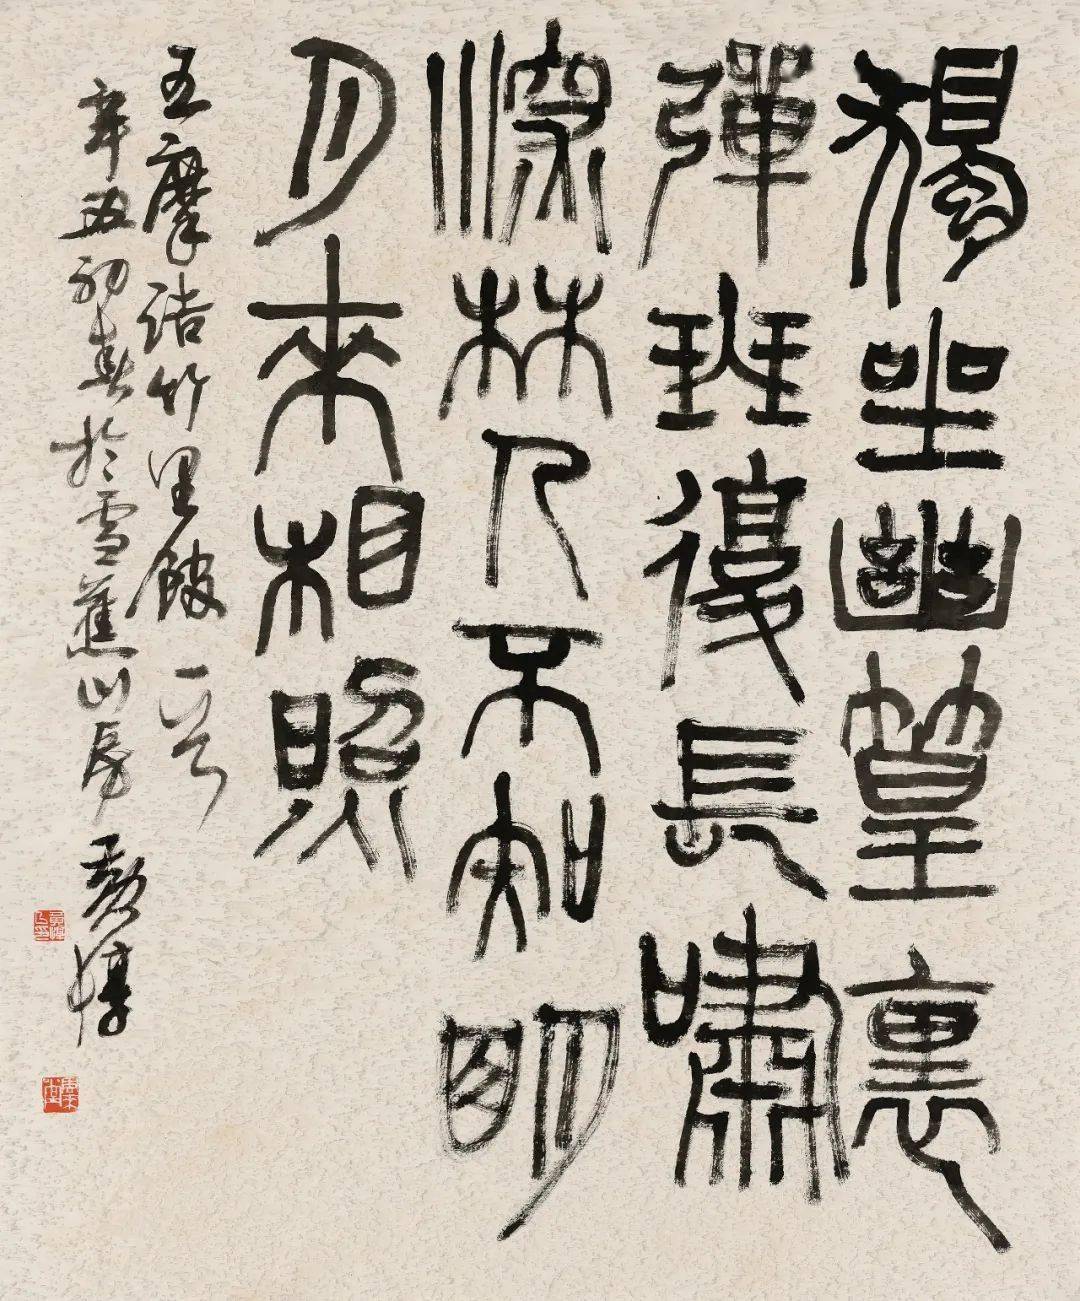 獨坐幽篁裏
彈班復長嘯
深林人不知明
月來相照
王摩詰竹里館一首
辛丑初春於雪蕉山房黃惇